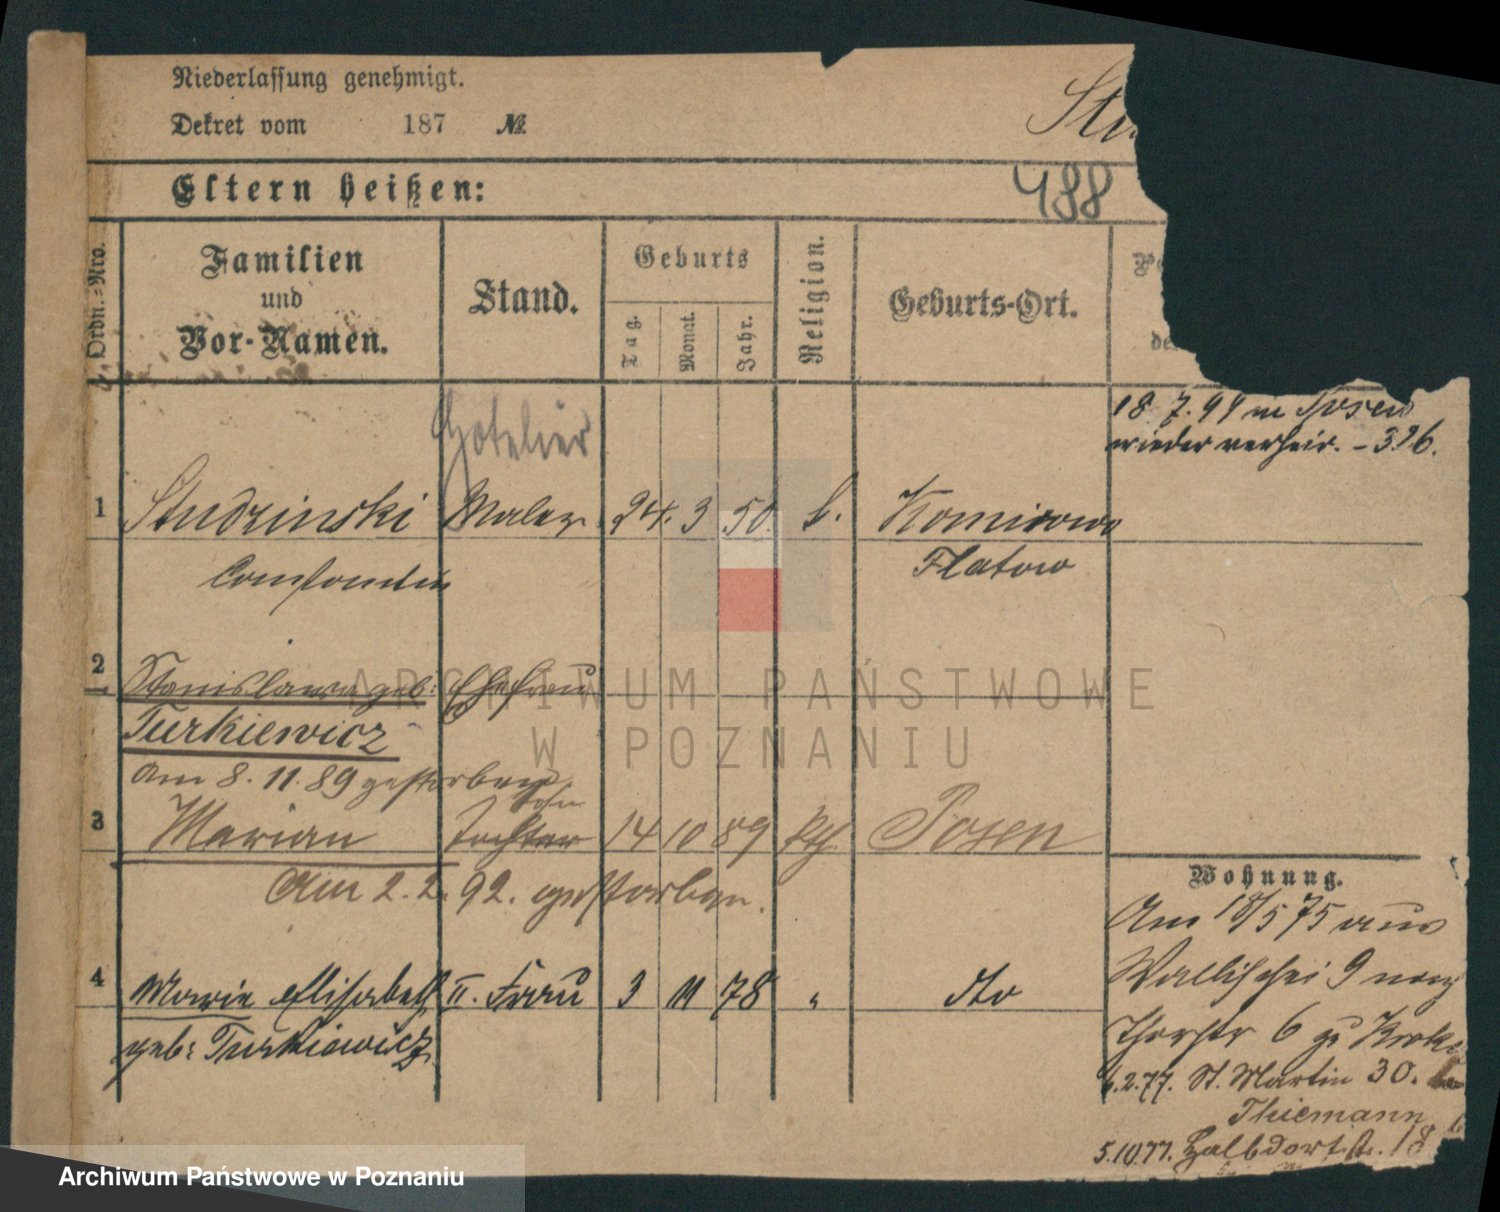 Niederlassung genehmigt.
Dekret vom 187 №
Stu
Eltern heißen:
488
Ordn.-Nro.
Familien
und
Vor-Namen.
Stand.
Geburts
Tag.
Monat.
Jahr.
Religion.
Geburts-Ort.
de
18 7. 94 in Posen
wieder verheir. - 326.
Hotelier
1 Studzinski Maler 24. 3 50. k. Komirowo
Constantin Flatow
2 Stanislawa geb: Ehefrau
Turkiewicz
am 8. 11. 89 gestorben
Sohn
3 Marian Tochter 14 10 89 kth. Posen
Am 2. 2. 92. gestorben.
Wohnung.
Am 18/5 75 aus
Wallischei 9 nach
Thorstr 6 zu
6.2.77. St. Martin 30.
Thiemann
5.10.77. Halbdorfstr. 18
4 Marie Elisabeth II. Frau 3 11 78 " dto
geb: Turkiewicz
ARCHIWUM PAŃSTWOWE
W POZNANIU
Archiwum Państwowe w Poznaniu